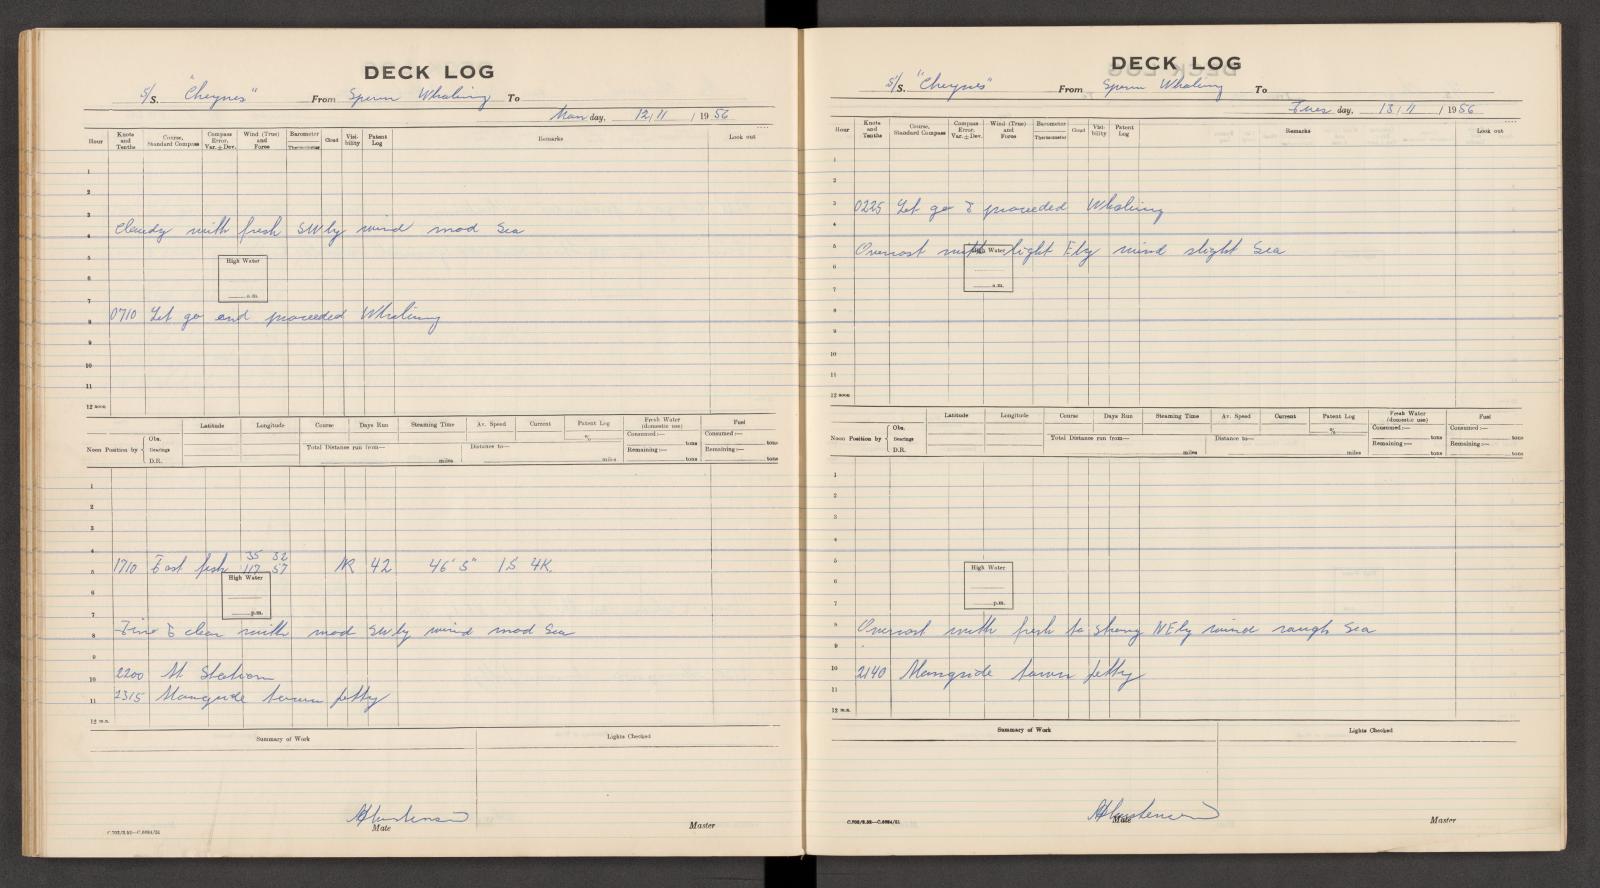 DECK LOG
S/S. "Cheynes" From Sperm Whaling To
Mon day, 12/11 / 1956
Hour Knots and Tenths Course, Standard Compass Compass Error, Var. ± Dev. Wind (True) and Force Barometer Thermometer Cloud Visibility Patent Log Remarks Look out
1
2
3
Cloudy with fresh SWly wind mod Sea
4
5
High Water
6
a.m.
7
0710 Let go and proceeded Whaling
8
9
10
11
12 noon
Latitude Longitude Course Days Run Steaming Time Av. Speed Current Patent Log Fresh Water (domestic use) Fuel
Noon Position by Obs. Bearings D.R.
% Consumed:— tons Consumed:— tons
Total Distance run from— miles Distance to— miles Remaining:— tons Remaining:— tons
1
2
3
4
35 32
1710 Fast fish 117 57 NR 42 46' 5" 1S 4K.
5
High Water
6
p.m.
7
Fine & clear with mod SWly wind mod Sea
8
9
2200 At Station
10
2315 Alongside town jetty
11
12 m.n.
Summary of Work Lights Checked
Mate Master
C.702/2.52—C.6084/51
DECK LOG
S/S. "Cheynes" From Sperm Whaling To
Tues day, 13/11 / 1956
Hour Knots and Tenths Course, Standard Compass Compass Error, Var. ± Dev. Wind (True) and Force Barometer Thermometer Cloud Visibility Patent Log Remarks Look out
1
2
3 0225 Let go & proceeded Whaling
4
5 Overcast with light Ely wind slight Sea
High Water
6
a.m.
7
8
9
10
11
12 noon
Latitude Longitude Course Days Run Steaming Time Av. Speed Current Patent Log Fresh Water (domestic use) Fuel
Noon Position by Obs. Bearings D.R.
% Consumed:— tons Consumed:— tons
Total Distance run from— miles Distance to— miles Remaining:— tons Remaining:— tons
1
2
3
4
5
High Water
6
p.m.
7
8 Overcast with fresh to strong NEly wind rough Sea
9
10 2140 Alongside town jetty
11
12 m.n.
Summary of Work Lights Checked
Mate Master
C.702/2.52—C.6084/51